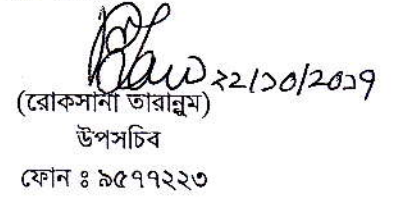 ২২/১০/২০১৭
(রোকসানা তারান্নুম)
উপসচিব
ফোন ঃ ৯৫৭৭২২৩